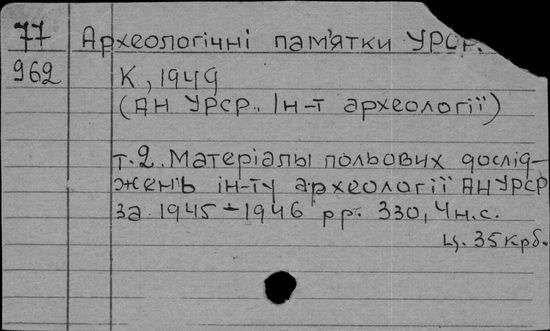 77 Археологічні пам'ятки УРСР.
962 К, 1949
(АН УРСР. Ін-т археології)
т.2. Матеріалы польових дослід-
жень ін-ту археології АН УРСР
за 1945-1946 рр. 330, 4 н.с.
ц. 35 крб.